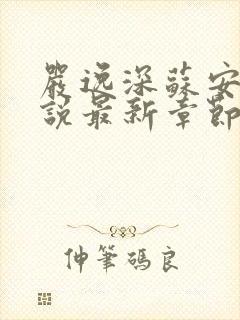 嚴逸深蘇安
說最新章節
仲筆碼良